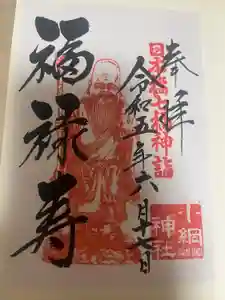 奉拝
日本橋七福神詣
令和五年六月十七日
福禄寿
小網
神社